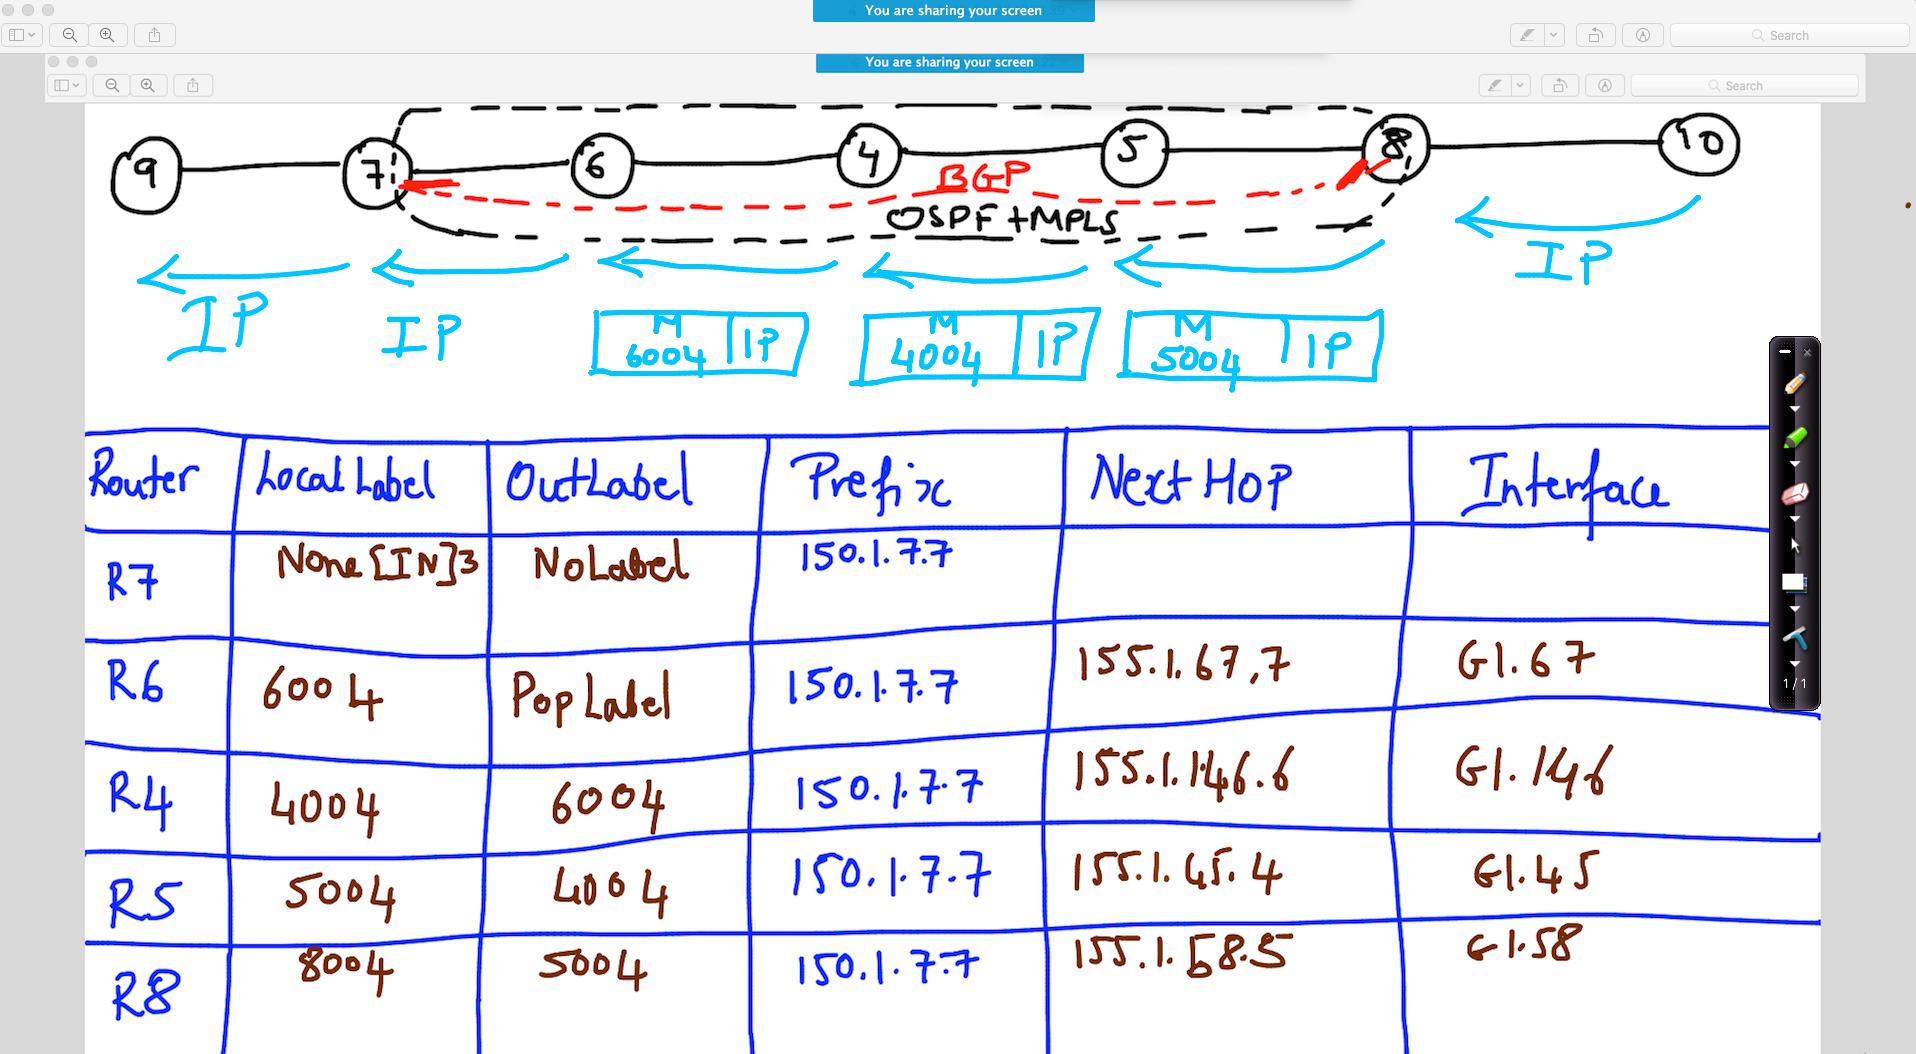 You are sharing your screen
Search
You are sharing your screen
Search
9 7 6 4 5 8 10
BGP
OSPF+MPLS
IP
IP
IP
M 6004 IP
M 4004 IP
M 5004 IP
Router Local Label OutLabel Prefix Next Hop Interface
R7 None [IN]3 NoLabel 150.1.7.7
R6 6004 Pop Label 150.1.7.7 155.1.67.7 G1.67
R4 4004 6004 150.1.7.7 155.1.146.6 G1.146
R5 5004 4004 150.1.7.7 155.1.45.4 G1.45
R8 8004 5004 150.1.7.7 155.1.58.5 G1.58
1 / 1